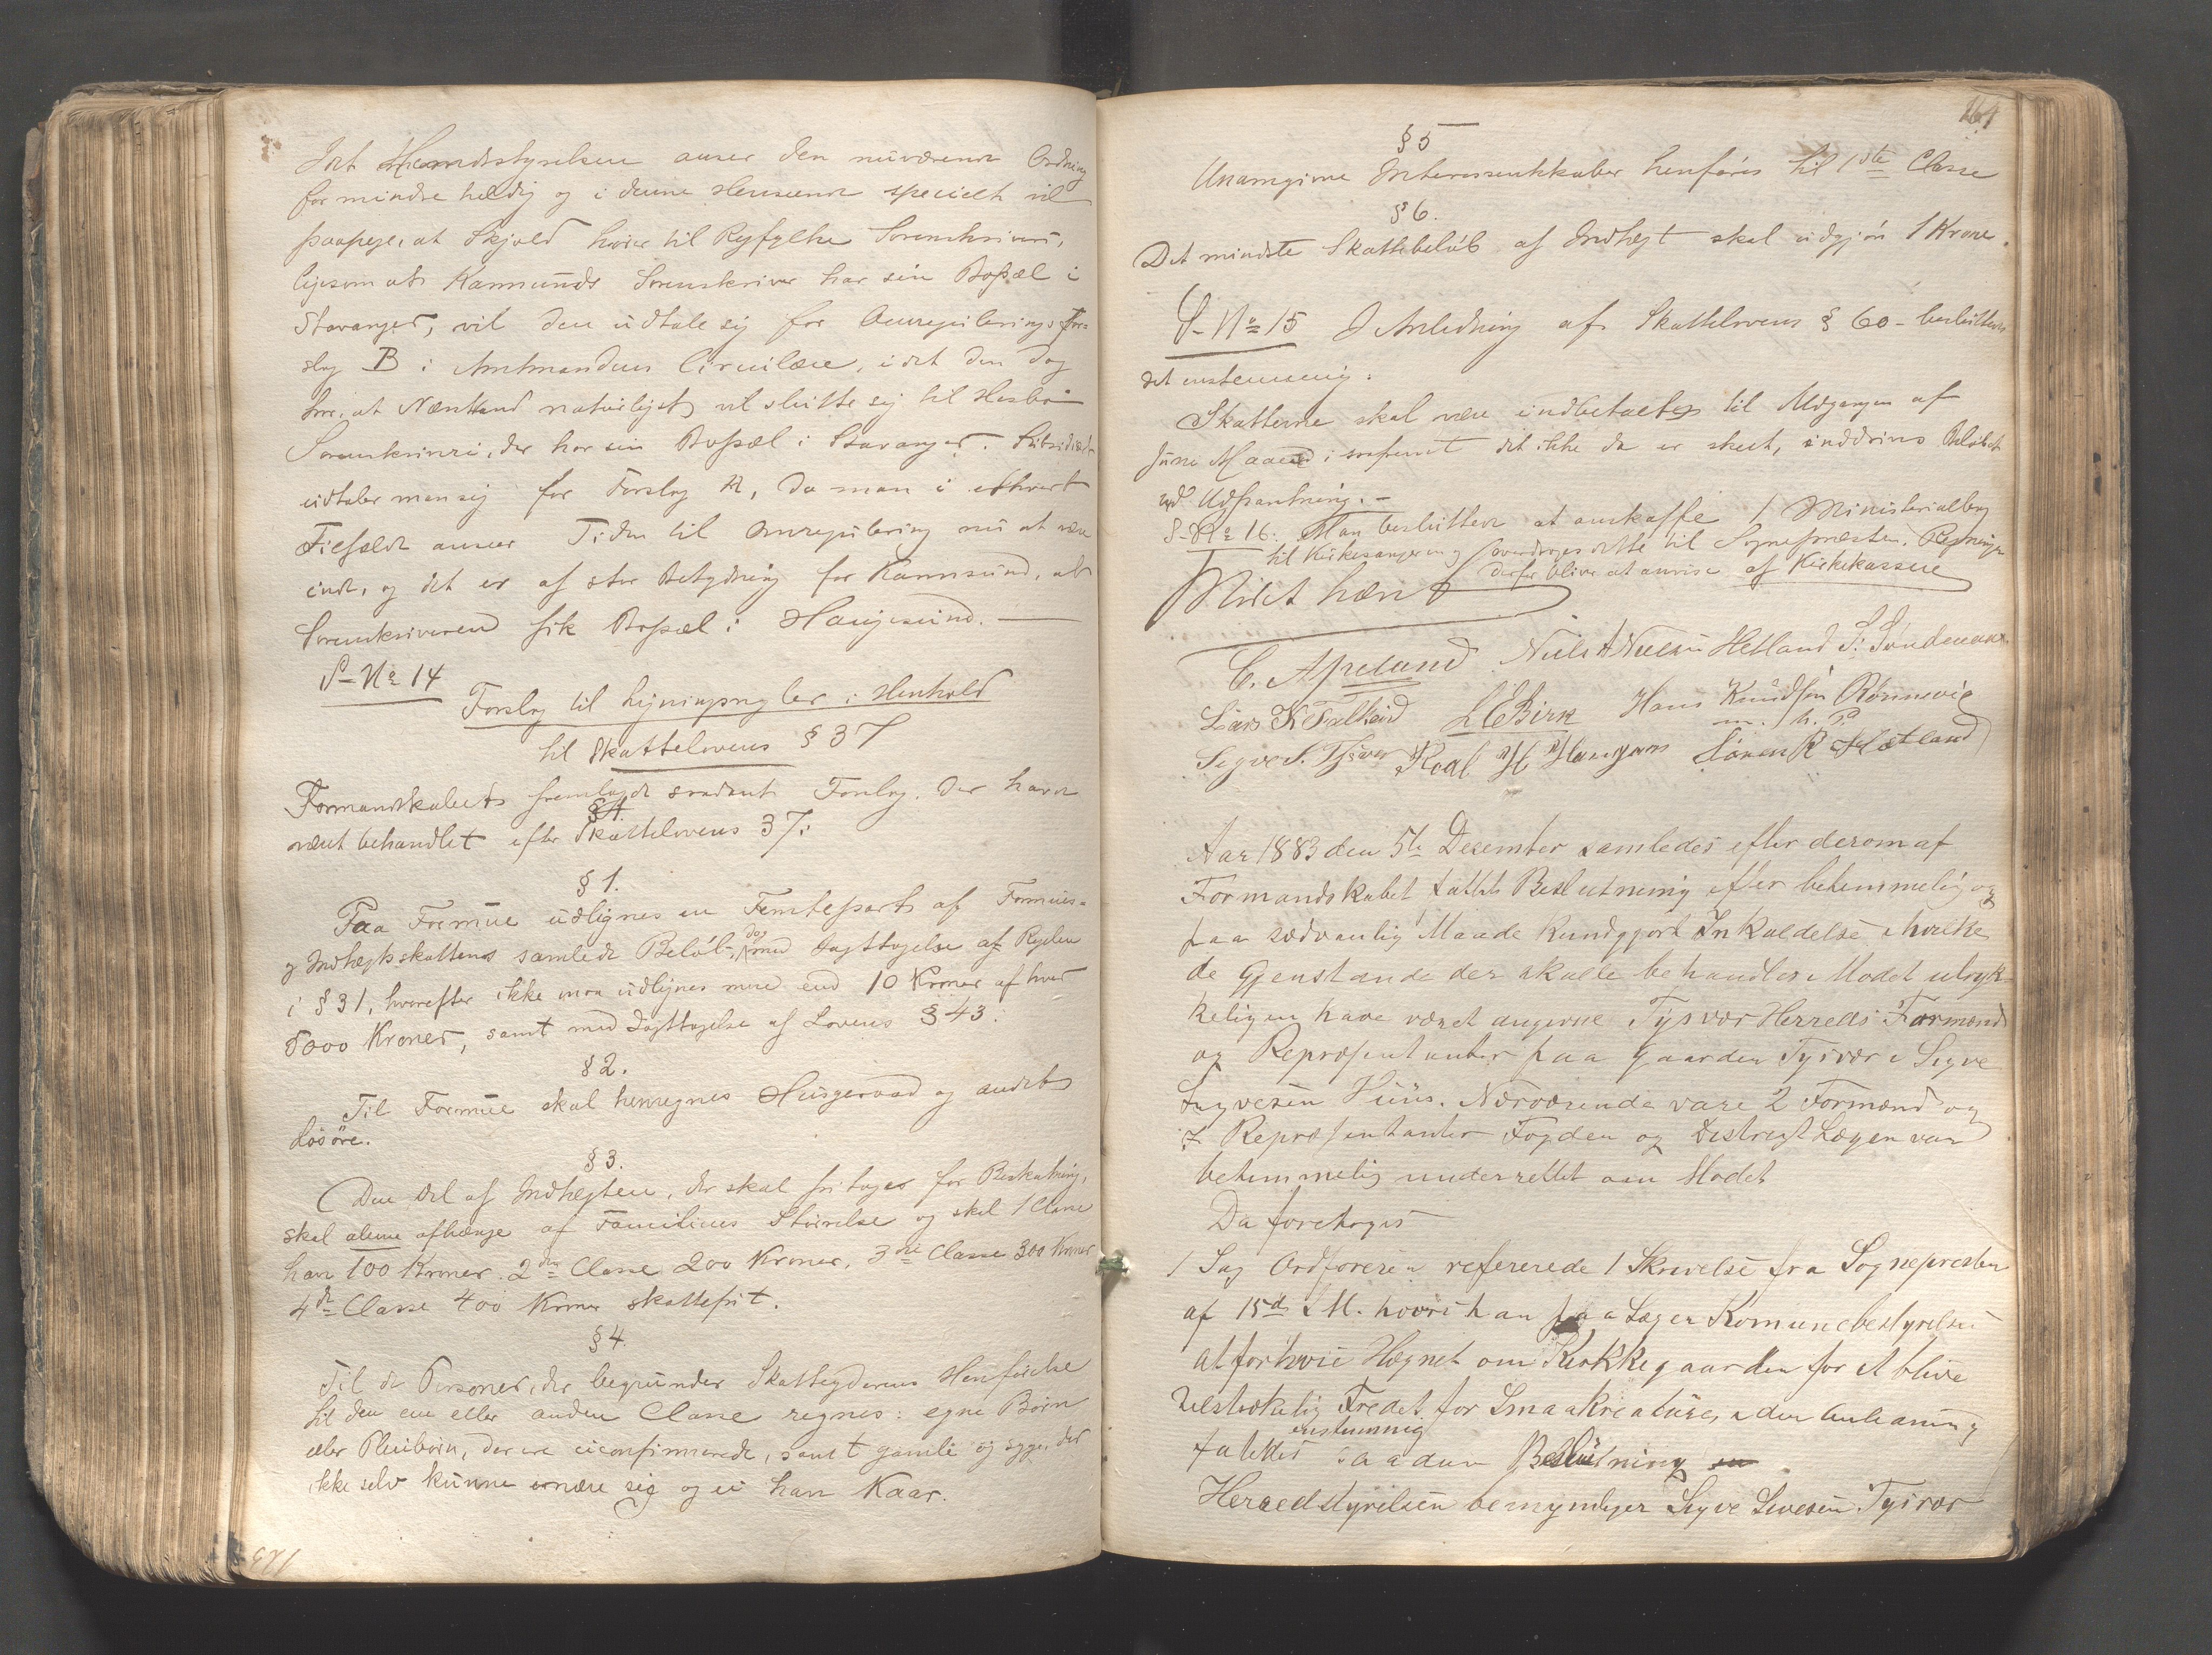 Idet Herredsstyrelsen anser den nuværende Ordning
for mindre heldig og i denne Henseende specielt vil
paapege, at Skjold hører til Ryfylke Sorenskriveri,
ligesom at Karmsunds Sorenskriver har sin Bopæl i
Stavanger, vil den udtale sig for Omreguleringsfor-
slag B i Amtmandens Circulære, idet den dog
tror, at Nærstrand naturligst vil slutte sig til Hesbø
Sorenskriveri, der har sin Bopæl i Stavanger. Subsidiært
udtaler man sig for Forslag A, da man i ethvert
Tilfælde anser Tiden til Omregulering nu at være
inde, og det er af stor Betydning for Karmsund, at
Sorenskriveren fik Bopæl i Haugesund. —
S-No 14
Forslag til Ligningsregler i Henhold
til Skattelovens § 37
Formandskabets fremlagde saadant Forslag, der havde
været behandlet efter Skattelovens 37:
§ 1.
Paa Formue udlignes en Femtepart af Formues-
og Indtægtsskattens samlede Beløb, dog med Iagttagelse af Reglen
i § 31, hvorefter ikke maa udlignes mere end 10 Kroner af hver
5000 Kroner, samt med Iagttagelse af Lovens § 43.
§ 2.
Til Formue skal henregnes Husgeraad og andet
Løsøre.
§ 3.
Den Del af Indtægten, der skal fritages for Beskatning,
skal alene afhænge af Familiens Størrelse og skal 1 Classe
have 100 Kroner. 2den Classe 200 Kroner, 3die Classe 300 Kroner
4de Classe 400 Kroner skattefrit.
§ 4.
Til de Personer, der begrunder Skatteyderens Henførelse
til den ene eller anden Classe regnes: egne Børn
eller Pleiebørn, der ere uconfirmerede, samt gamle og syge, der
ikke selv kunne ernære sig og ei have Kaar.
161
§ 5
Unavngivne Interessentskaber henføres til 1ste Classe
§ 6.
Det mindste Skattebeløb af Indtægt skal udgjøre 1 Krone.
S-No 15 I Anledning af Skattelovens § 60 - besluttedes
det enstemmig:
Skatterne skal være indbetalte til Udgangen af
Juni Maaned; isafremt det ikke da er skeet, inddrives Beløbet
ved Udpantning. —
S-No 16: Man besluttede at anskaffe 1 Ministerialbog
til Kirkesangeren og overdroges dette til Sognepræsten. Regningen
derfor bliver at anvise af Kirkekassen
Mødet hævet
C. Apeland Niels A Nielsen Hetland S. Sundenaa
Lars K Falkeid L E Birk Hans Knudsen Rønnevig
m. h. P.
Sigve S. Tysvær Roal H Haugan Søren R Hetland
Aar 1883 den 5te Desember samledes efter derom af
Formandskabet fattet Beslutning efter betimmelig og
paa sædvanlig Maade kundgjort Inkaldelse i hvilke
de Gjenstande der skulle behandles i Modet udryk-
keligen have været angivne Tysvær Herreds Formænd
og Repræsentanter paa Gaarden Tysvær i Sigve
Sigvesen Huus. Nærværende vare 2 Formænd og
7 Repræsentanter Fogden og Destrigt Lægen var
betimmelig underrettet om Modet
Da foretoges
1 Sag Ordføreren refererede 1 Skrivelse fra Sognepresten
af 15de d M. hvori han paalæger Komunebestyrelsen
at forhøie Hegnet om Kirkkegaarden for at blive
tilstrækelig Fredet for Smaakreature, i den Anledning
enstemmig
fattedes saadan Beslutning
Herredstyrelsen bemyndiger Sigve Sivesen Tysvær